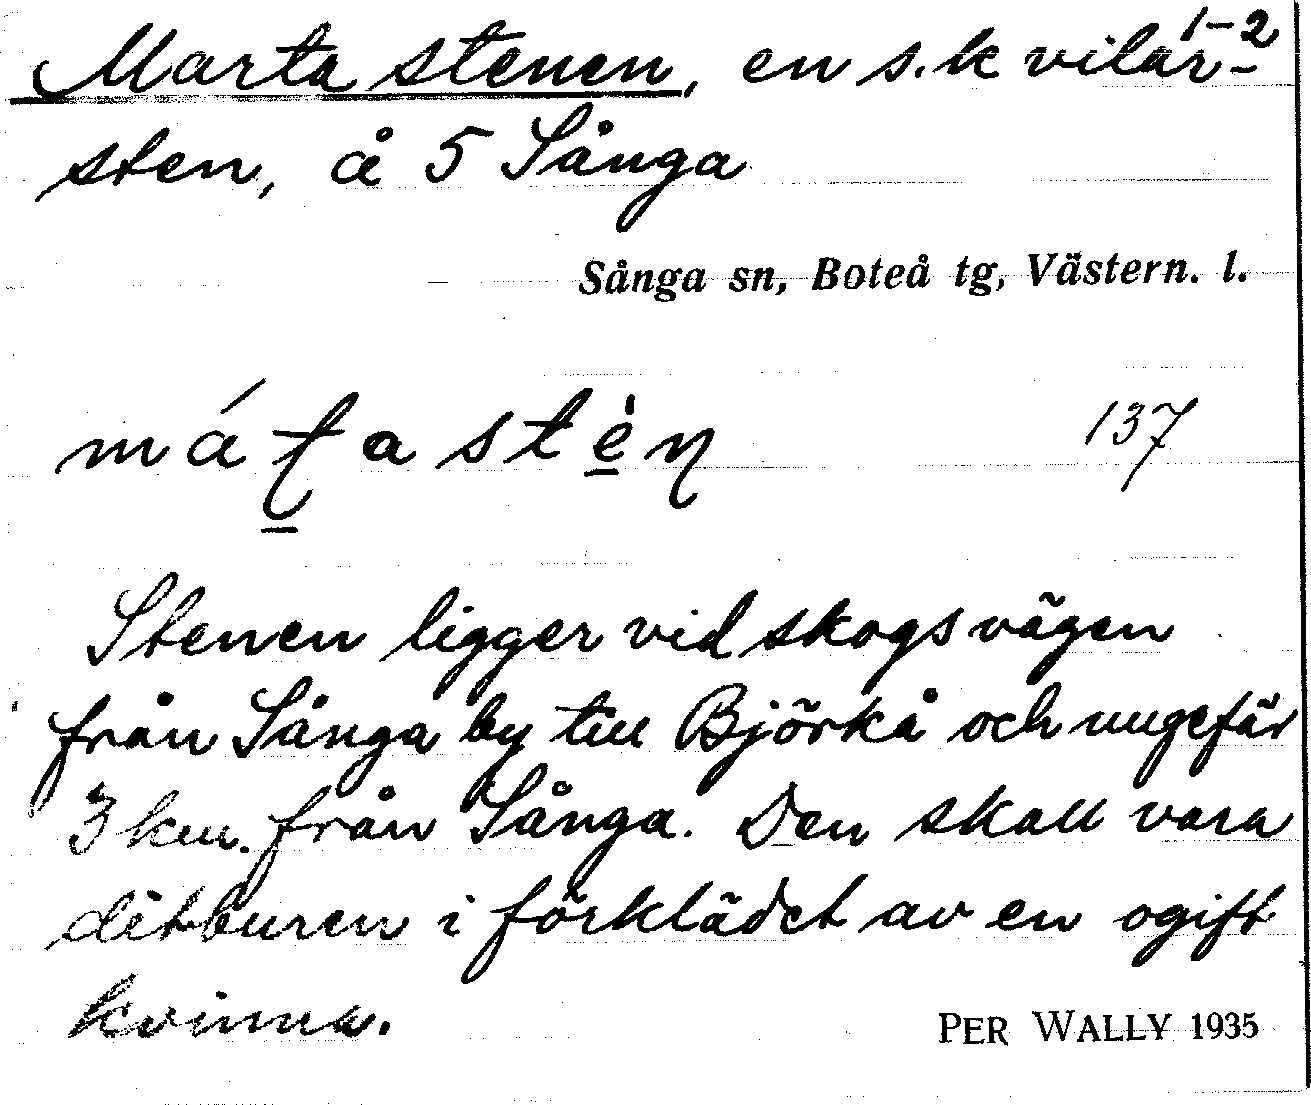 1-2
Marta stenen, en s.k vilar-
sten, å 5 Sånga
Sånga sn, Boteå tg, Västern. l.
137
Stenen ligger vid skogsvägen
från Sånga by till Björkå och ungefär
3 km. från Sånga. Den skall vara
ditburen i förklädet av en ogift
kvinna.
PER WALLY 1935